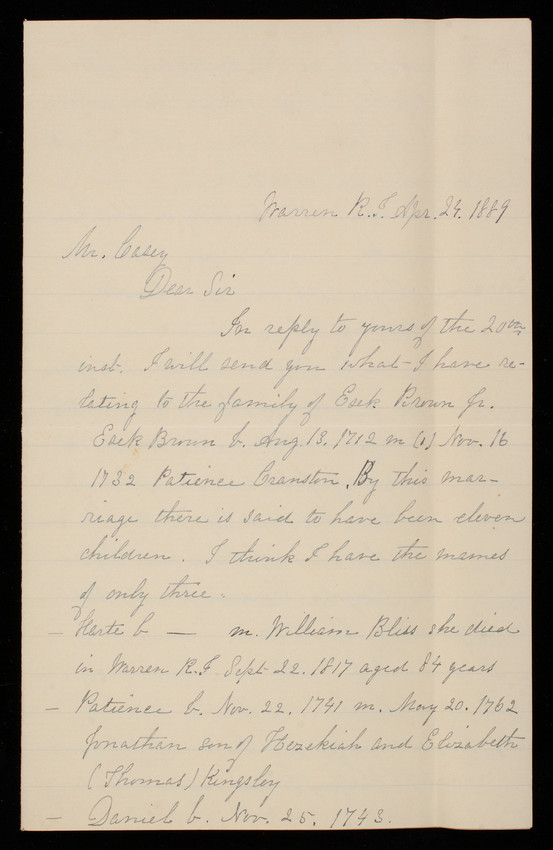 Warren R.I. Apr. 24. 1889
Mr. Casey
Dear Sir
In reply to yours of the 20th
inst. I will send you what I have re-
lating to the family of Esek Brown Jr.
Esek Brown b. Aug. 13. 1712 m (1) Nov. 16
1732 Patience Cranston. By this mar-
riage there is said to have been eleven
children. I think I have the names
of only three.
— b — m. William Bliss she died
in Warren R.I. Sept. 22. 1817 aged 84 years
— Patience b. Nov. 22. 1741 m. May 20. 1762
Jonathan son of Hezekiah and Elizabeth
(Thomas) Kingsley
— Daniel b. Nov. 25. 1743.